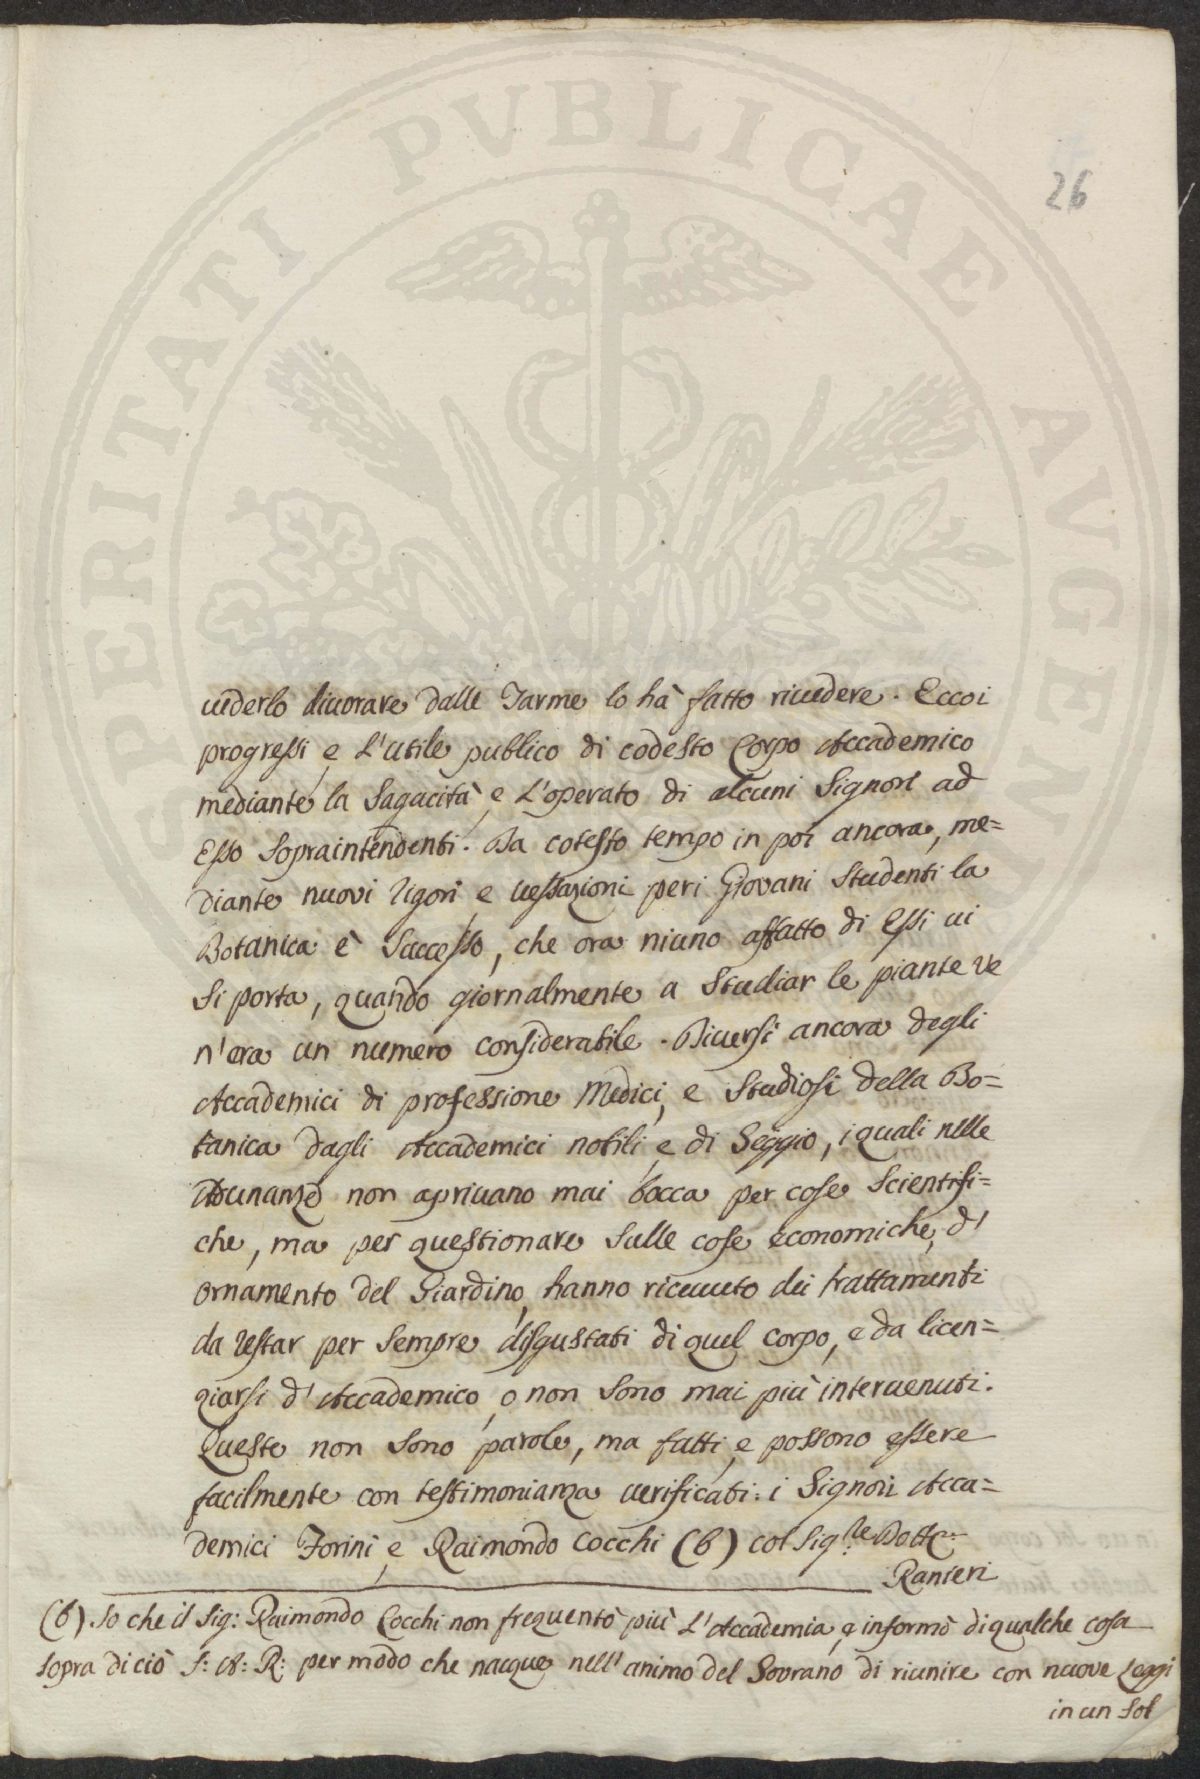 PROSPERITATI PVBLICAE AVGENDAE
26
vederlo divorare dalle Tarme lo hà fatto rivedere. Ecco i
progressi, e l'utile publico di codesto Corpo Accademico
mediante la Sagacità, e l'operato di alcuni Signori ad
Esso Sopraintendenti. Da cotesto tempo in poi ancora, me=
diante nuovi rigori, e vessazioni per i Giovani Studenti la
Botanica è Successo, che ora niuno affatto di Essi vi
si porta, quando giornalmente a Studiar le piante ve
n'era un numero considerabile. Diversi ancora degli
Accademici di professione Medici, e Studiosi della Bo=
tanica dagli Accademici nobili, e di Seggio, i quali nelle
Adunanze non aprivano mai bocca per cose Scientifi=
che, ma per questionare Sulle cose economiche, d'
ornamento del Giardino, hanno ricevuto dei trattamenti
da restar per Sempre disgustati di quel corpo, e da licen=
ziarsi d'Accademico, o non Sono mai più intervenuti.
Queste non Sono parole, ma fatti, e possono essere
facilmente con testimonianza verificati: i Signori Acca=
demici Forini, e Raimondo Cocchi (b) col Sig.re Dott.
Ranieri
(b) So che il Sig: Raimondo Cocchi non frequentò più l'Accademia, e informò di qualche cosa
sopra di ciò S: A: R: per modo che nacque nell'animo del Sovrano di riunire con nuove Leggi
in un Sol